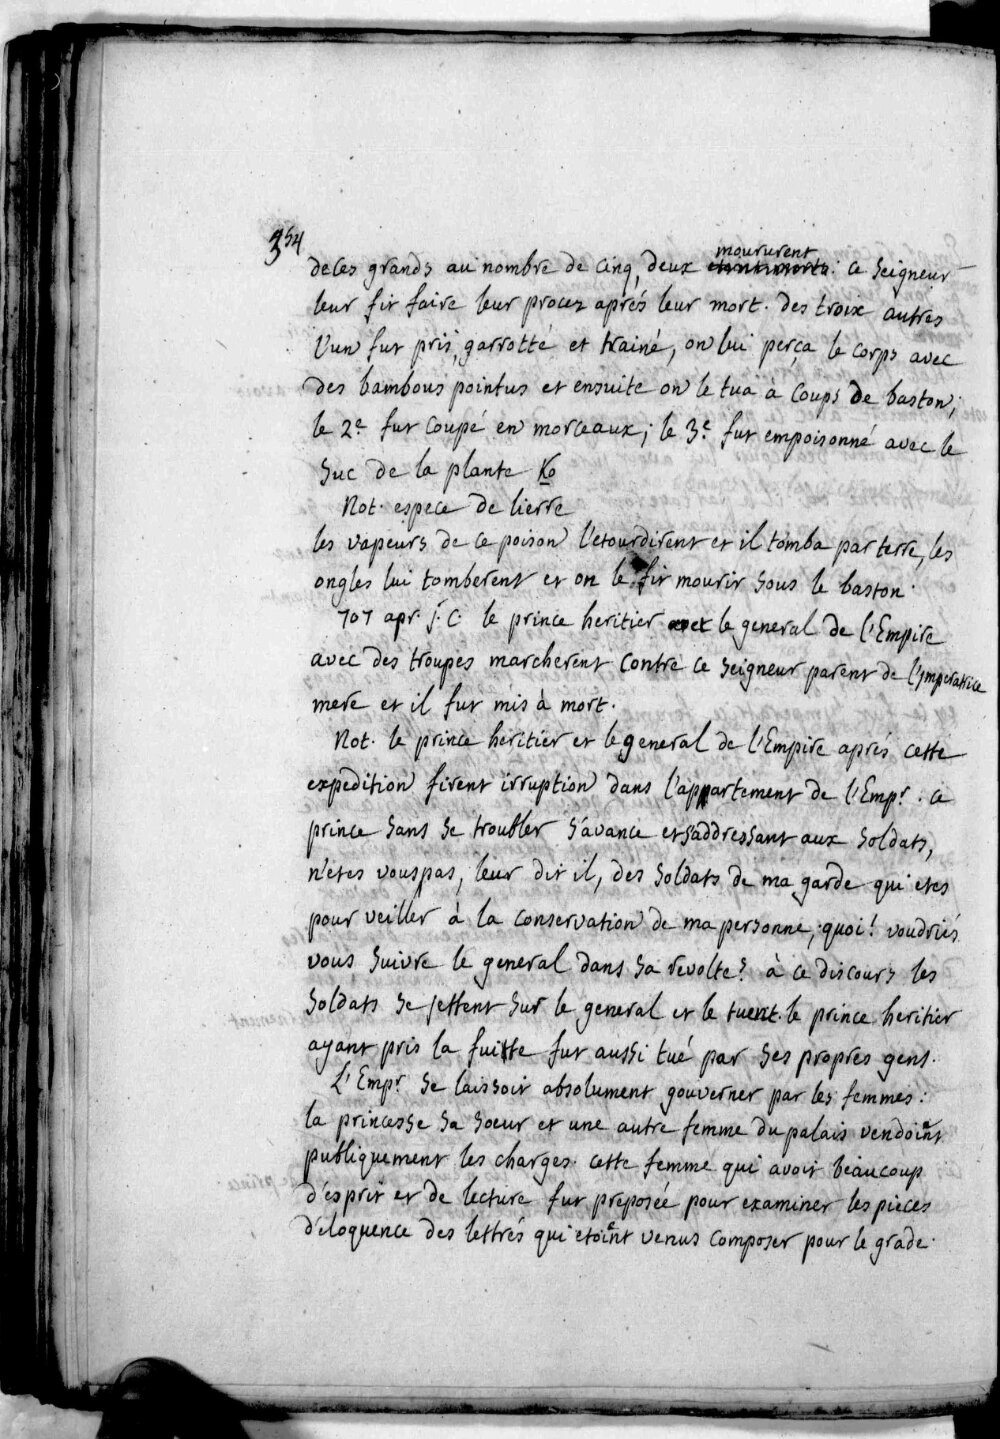 354
de ces grands au nombre de cinq, deux moururent : ce seigneur
leur fit faire leur procez aprés leur mort. des troix autres
l'un fut pris, garrotté et trainé, on lui perça le corps avec
des bambous pointus et ensuite on le tua à coups de baston;
le 2.e fut coupé en morceaux; le 3.e fut empoisonné avec le
suc de la plante Ko
Not. espece de lierre
les vapeurs de ce poison l'etourdirent et il tomba par terre, les
ongles lui tomberent et on le fit mourir sous le baston.
707 apr. j. C. le prince heritier et le general de l'Empire
avec des troupes marcherent contre ce seigneur parent de l'ymperatrice
mere et il fut mis à mort.
Not. le prince heritier et le general de l'Empire aprés cette
expedition firent irruption dans l'appartement de l'Emp.r . ce
prince sans se troubler s'avance et s'addressant aux soldats,
n'etes vous pas, leur dit il, des soldats de ma garde qui etes
pour veiller à la conservation de ma personne, quoi! voudriés
vous suivre le general dans sa revolte? à ce discours les
soldats se jettent sur le general et le tuent. le prince heritier
ayant pris la fuitte fut aussi tué par ses propres gens.
L'Emp.r se laissoit absolument gouverner par les femmes:
la princesse sa soeur et une autre femme du palais vendoient
publiquement les charges. cette femme qui avoit beaucoup
d'esprit et de lecture fut preposée pour examiner les pieces
d'eloquence des lettrés qui etoient venus composer pour le grade.